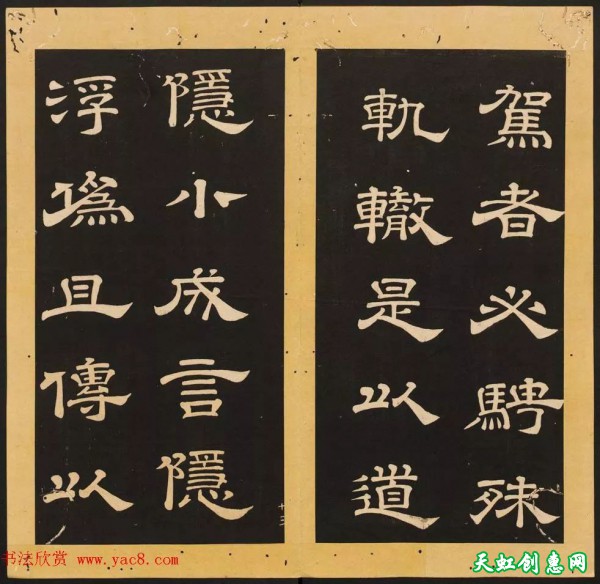 駕者必騁殊
軌轍是以道
隱小成言隱
浮偽且傳以
十三
书法欣赏 www.yac8.com
天虹创惠网